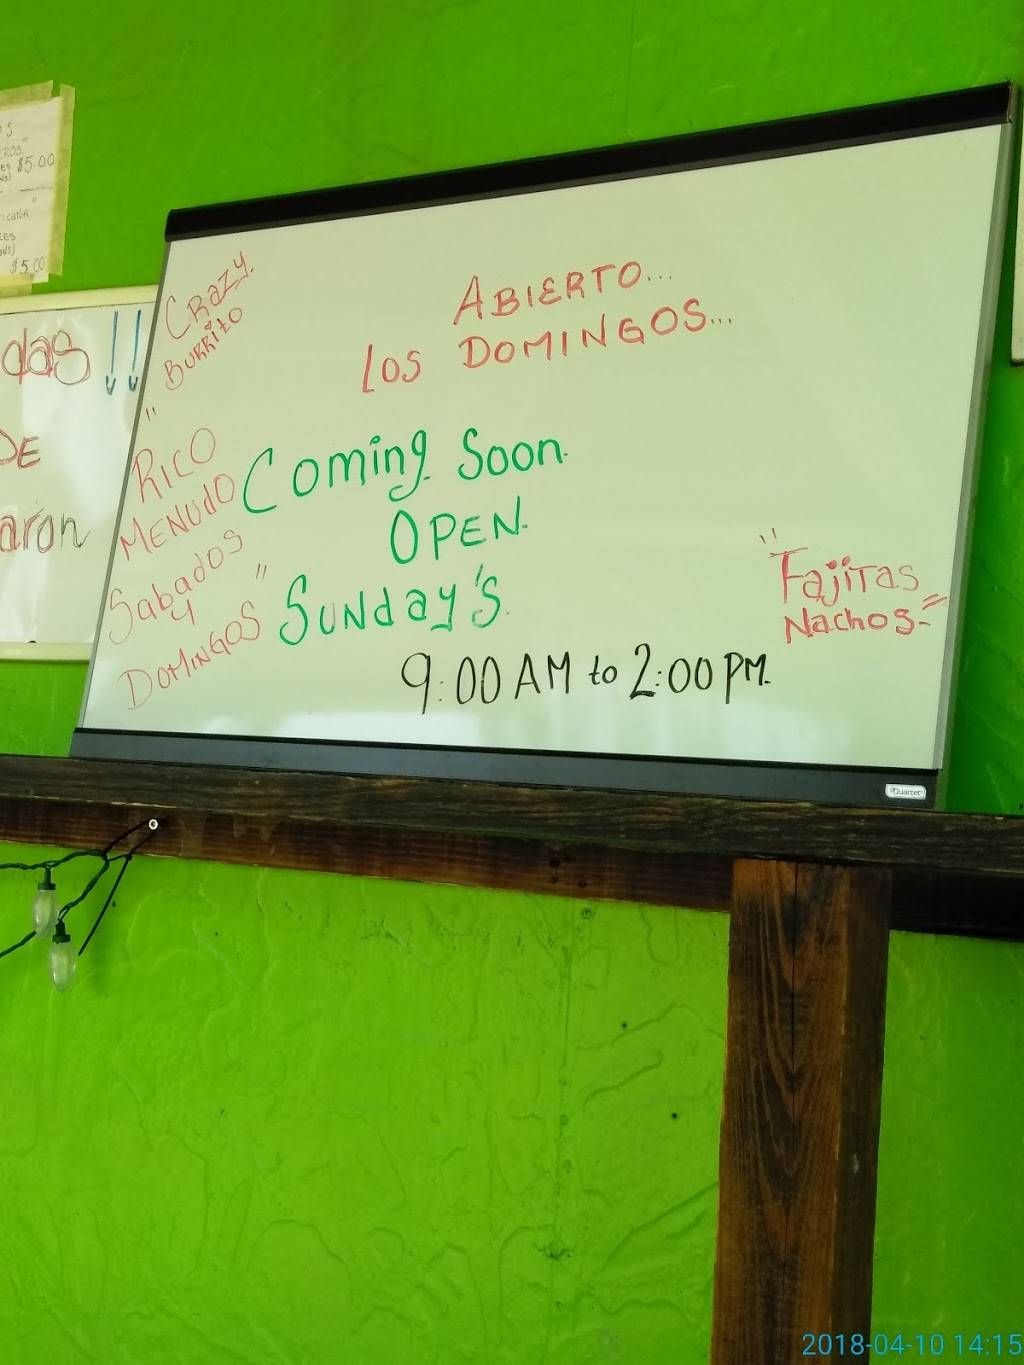 $5.00
$5.00
das
DE
aron
CRazy.
BURRito
"
RICO
MENUdO
Sabados
y "
DOMINGOS
ABIERTO...
LOS DOMINGOS...
Coming Soon.
OPEN.
SUNday's.
9:00 AM to 2:00 PM.
"FajiTas
Nachos-"
Quartet
2018-04-10 14:15